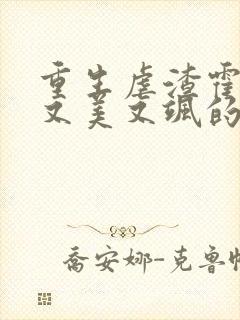 重生虐渣霍
又美又飒的
乔安娜-克鲁